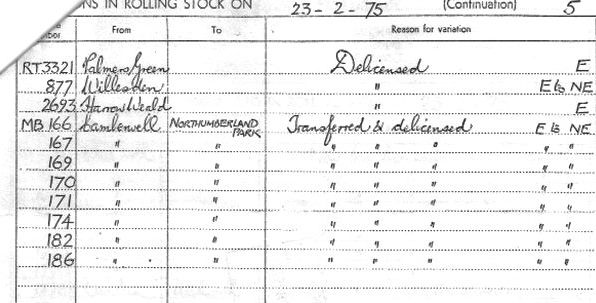 NS IN ROLLING STOCK ON 23-2-75 (Continuation) 5
From To Reason for variation
RT3321 Palmers Green Delicensed E
877 Willesden " E to NE
2693 Harrow Weald " E
MB 166 Camberwell NORTHUMBERLAND PARK Transferred & delicensed E to NE
167 " " " " " " "
169 " " " " " " "
170 " " " " " " "
171 " " " " " " "
174 " " " " " " "
182 " " " " " " "
186 " " " " " " "